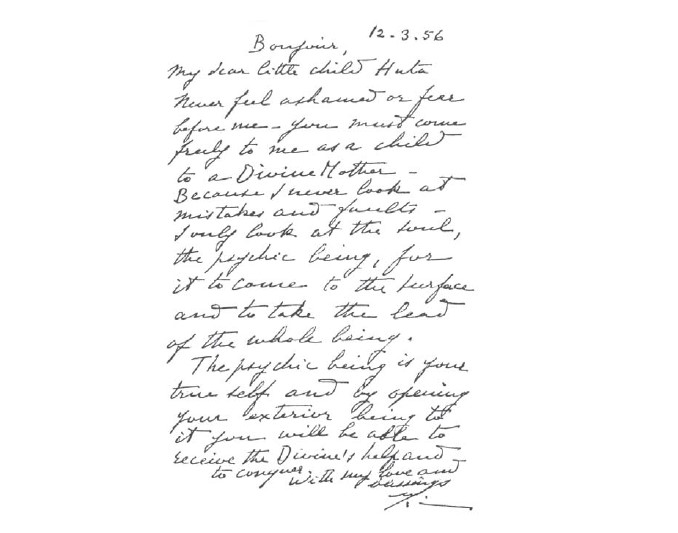 12.3.56
Bonjour,
My dear little child Huta
Never feel ashamed or fear
before me – you must come
freely to me as a child
to a Divine Mother –
Because I never look at
mistakes and faults –
I only look at the soul,
the psychic being, for
it to come to the surface
and to take the lead
of the whole being.
The psychic being is your
true self and by opening
your exterior being to
it you will be able to
receive the Divine's help and
to conquer
with my love and
blessings